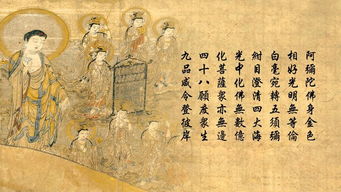 阿彌陀佛身金色
相好光明無等倫
白毫宛轉五須彌
紺目澄清四大海
光中化佛無數億
化菩薩衆亦無邊
四十八願度衆生
九品咸令登彼岸